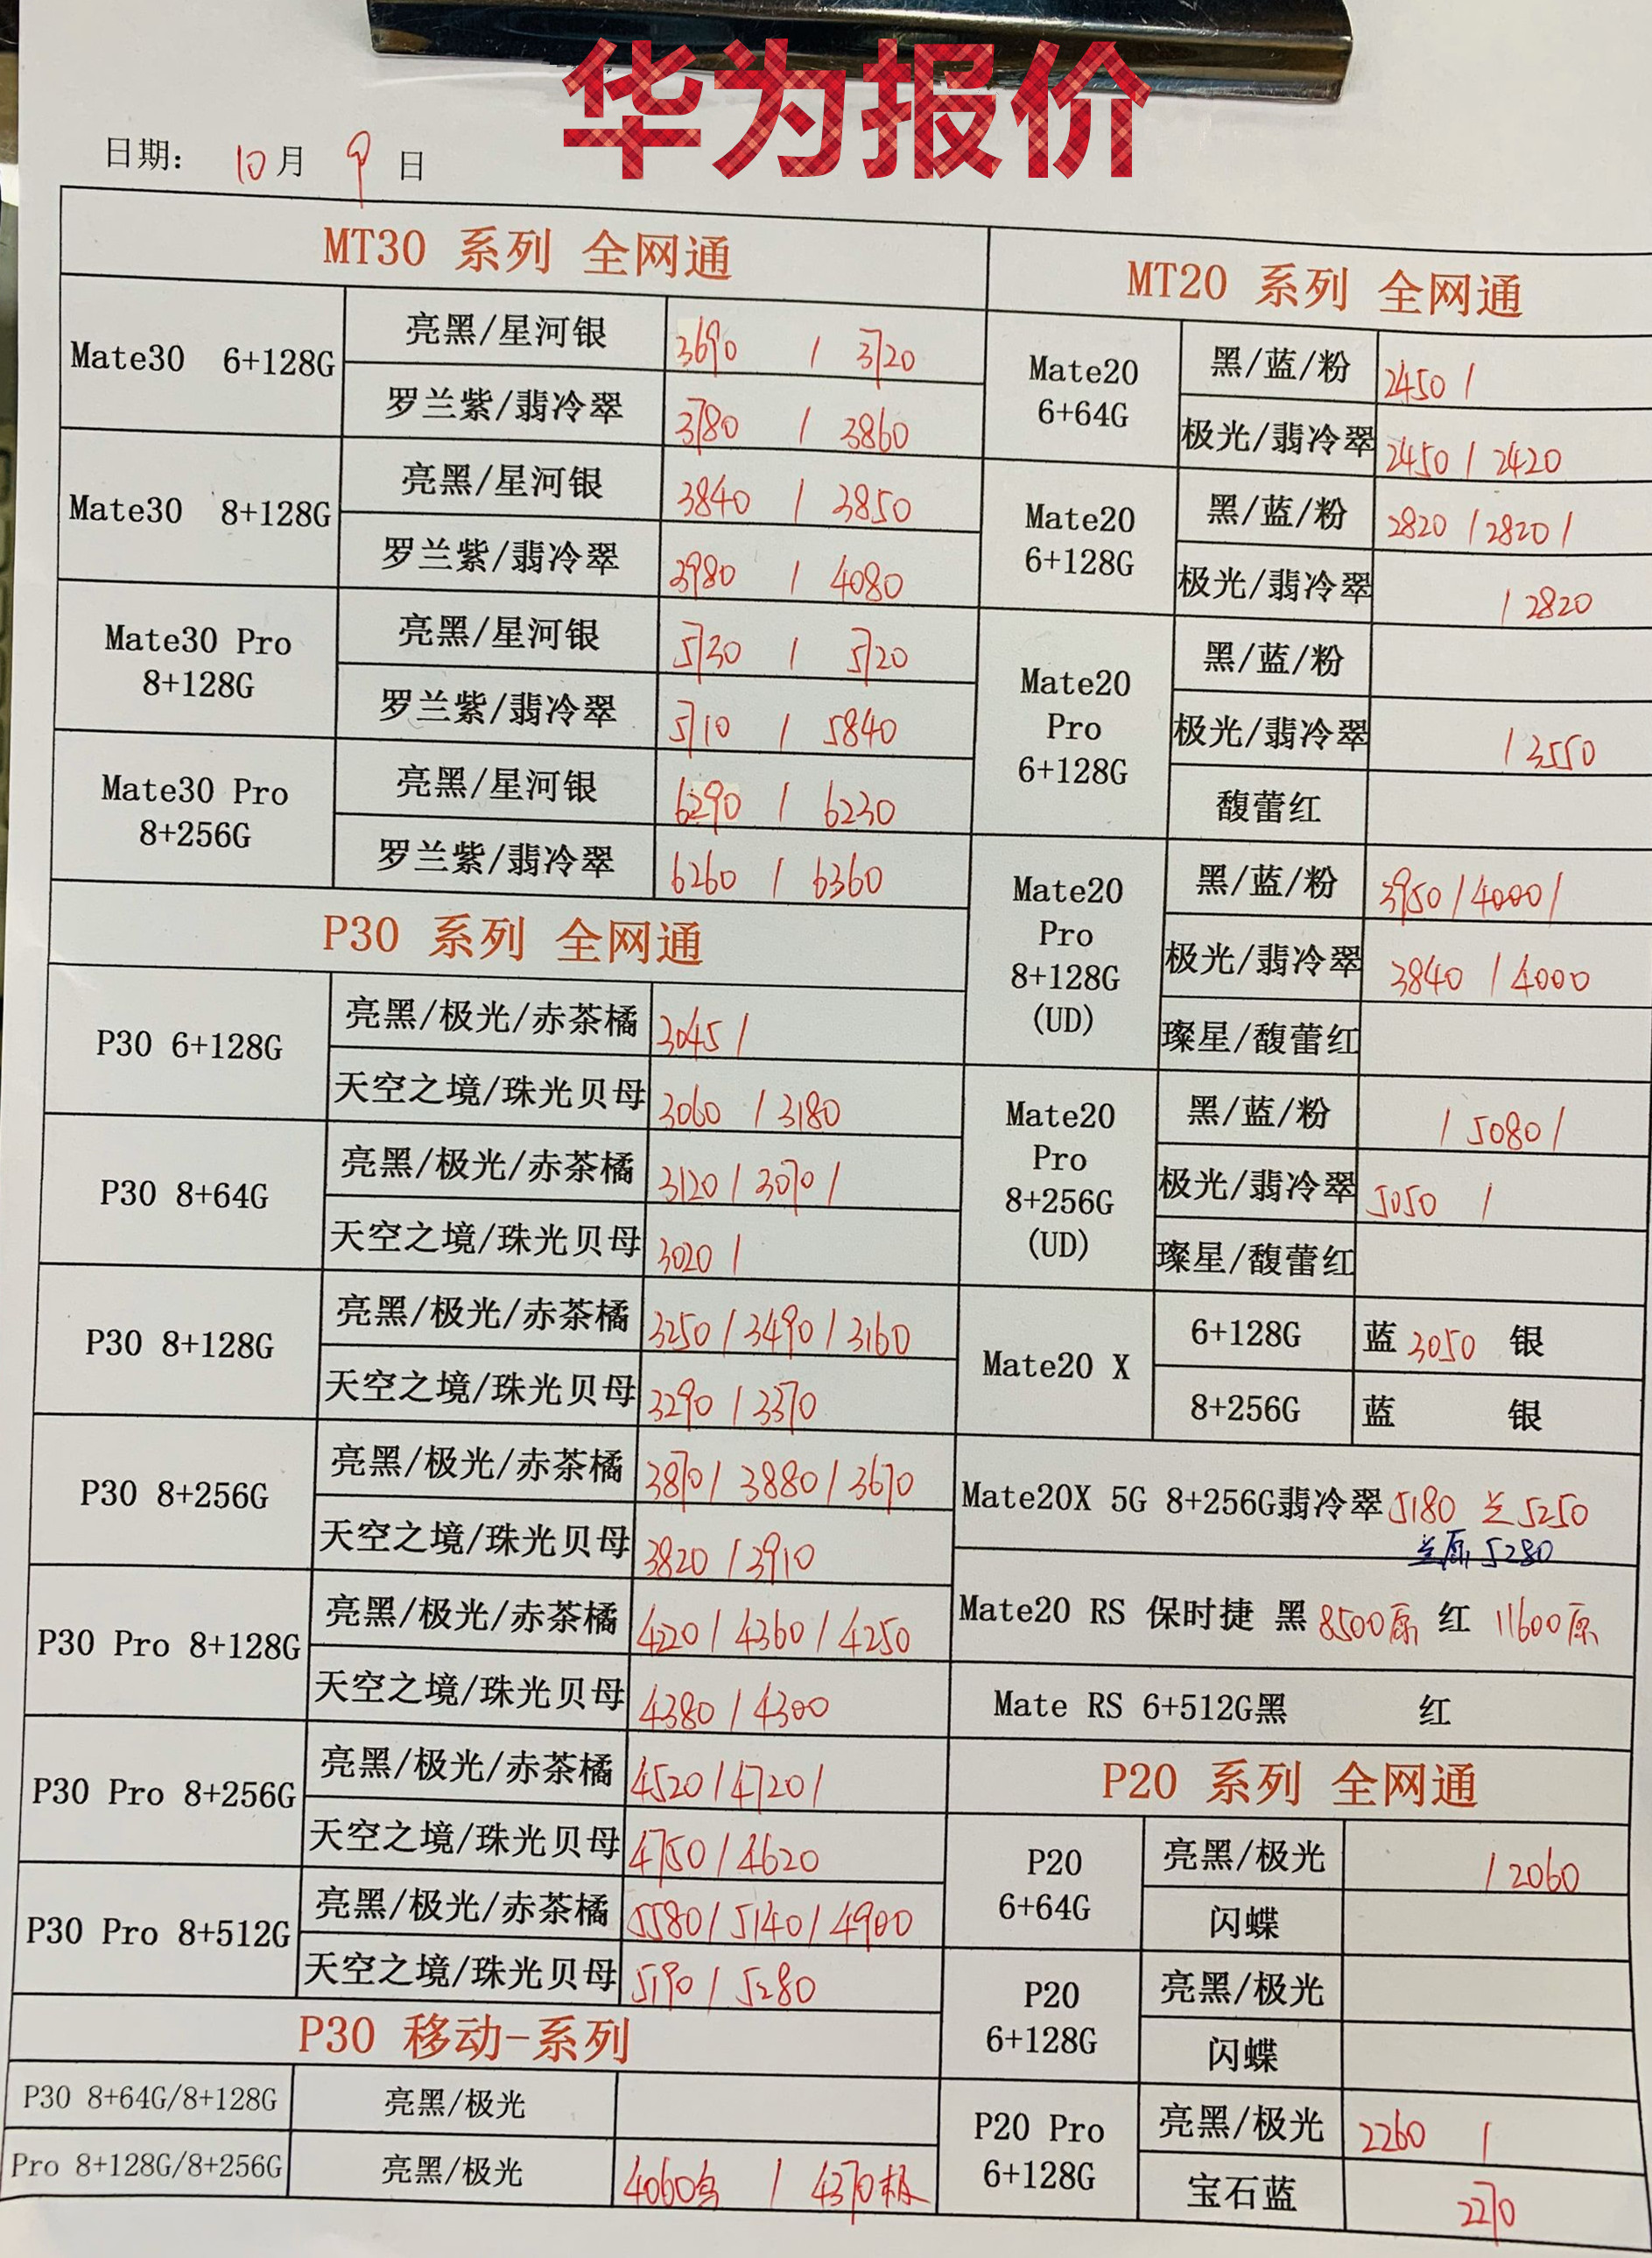 华为报价
日期: 10月 9日
MT30 系列 全网通
Mate30 6+128G
亮黑/星河银 3690 / 3720
罗兰紫/翡冷翠 3780 / 3860
Mate30 8+128G
亮黑/星河银 3840 / 3850
罗兰紫/翡冷翠 3980 / 4080
Mate30 Pro
8+128G
亮黑/星河银 5730 / 5720
罗兰紫/翡冷翠 5710 / 5840
Mate30 Pro
8+256G
亮黑/星河银 6290 / 6230
罗兰紫/翡冷翠 6260 / 6360
P30 系列 全网通
P30 6+128G
亮黑/极光/赤茶橘 3045 /
天空之境/珠光贝母 3060 / 3180
P30 8+64G
亮黑/极光/赤茶橘 3120 / 3070 /
天空之境/珠光贝母 3020 /
P30 8+128G
亮黑/极光/赤茶橘 3250 / 3490 / 3160
天空之境/珠光贝母 3290 / 3370
P30 8+256G
亮黑/极光/赤茶橘 3870 / 3880 / 3670
天空之境/珠光贝母 3820 / 3910
P30 Pro 8+128G
亮黑/极光/赤茶橘 4220 / 4360 / 4250
天空之境/珠光贝母 4380 / 4300
P30 Pro 8+256G
亮黑/极光/赤茶橘 4520 / 4720 /
天空之境/珠光贝母 4750 / 4620
P30 Pro 8+512G
亮黑/极光/赤茶橘 5580 / 5140 / 4900
天空之境/珠光贝母 5190 / 5280
P30 移动-系列
P30 8+64G/8+128G 亮黑/极光
Pro 8+128G/8+256G 亮黑/极光 4060 / 4370极
MT20 系列 全网通
Mate20
6+64G
黑/蓝/粉 2450 /
极光/翡冷翠 2450 / 2420
Mate20
6+128G
黑/蓝/粉 2820 / 2820 /
极光/翡冷翠 / 2820
Mate20
Pro
6+128G
黑/蓝/粉
极光/翡冷翠 / 3550
馥蕾红
Mate20
Pro
8+128G
(UD)
黑/蓝/粉 3950 / 4000 /
极光/翡冷翠 3840 / 4000
璨星/馥蕾红
Mate20
Pro
8+256G
(UD)
黑/蓝/粉 / 5080 /
极光/翡冷翠 5050 /
璨星/馥蕾红
Mate20 X
6+128G 蓝 3050 银
8+256G 蓝 银
Mate20X 5G 8+256G翡冷翠 5180 兰5250
兰原 5280
Mate20 RS 保时捷 黑 8500原 红 11600原
Mate RS 6+512G黑 红
P20 系列 全网通
P20
6+64G
亮黑/极光 / 2060
闪蝶
P20
6+128G
亮黑/极光
闪蝶
P20 Pro
6+128G
亮黑/极光 2260 /
宝石蓝 2270